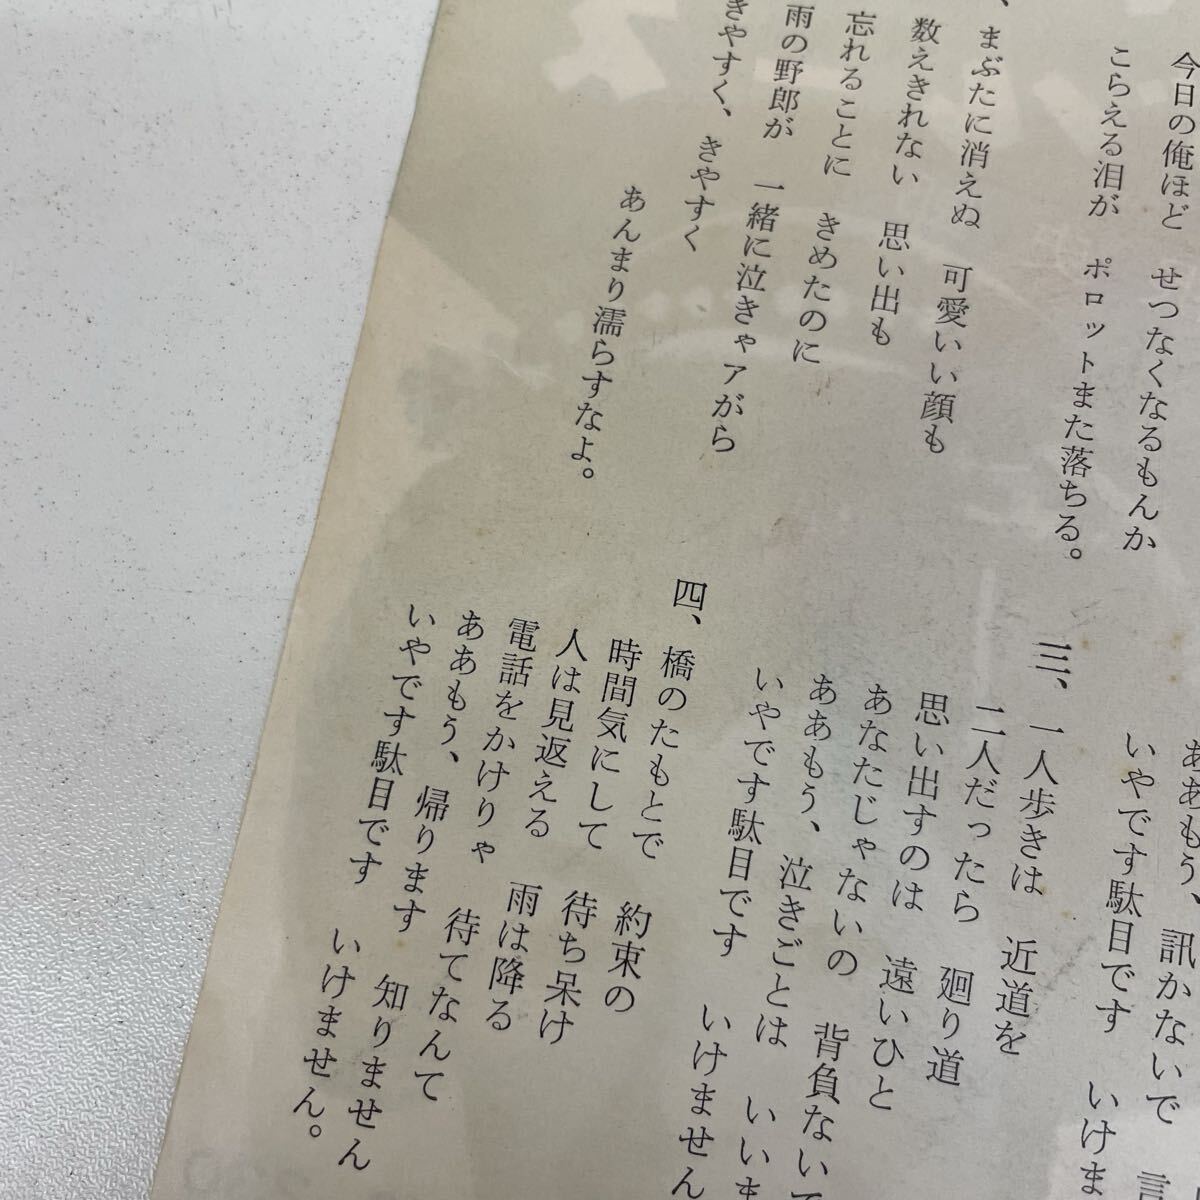 今日の俺ほど　せつなくなるもんか
こらえる泪が　ポロットまた落ちる。
、まぶたに消えぬ　可愛いい顔も
数えきれない　思い出も
忘れることに　きめたのに
雨の野郎が　一緒に泣きゃアがら
きやすく、きやすく
あんまり濡らすなよ。
ああもう、訊かないで　言
いやです駄目です　いけま
三、一人歩きは　近道を
二人だったら　廻り道
思い出すのは　遠いひと
あなたじゃないの　背負ないで
ああもう、泣きごとは　いいま
いやです駄目です　いけません
四、橋のたもとで　約束の
時間気にして　待ち呆け
人は見返える　雨は降る
電話をかけりゃ　待てなんて
ああもう、帰ります　知りません
いやです駄目です　いけません。